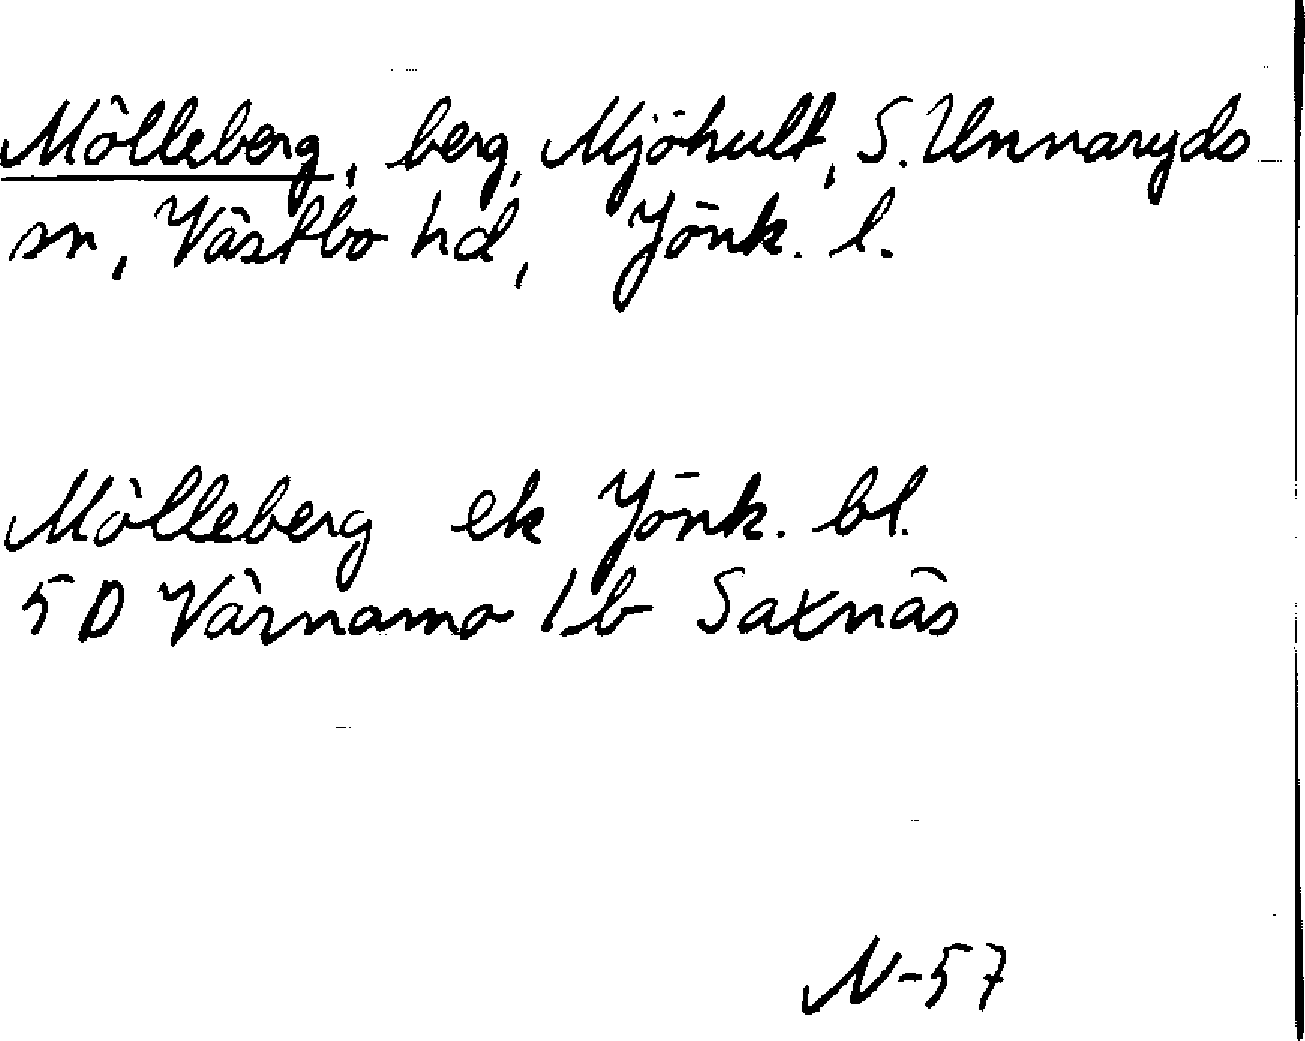 Mölleberg, berg, Mjöhult, S. Unnaryds
sn, Västbo hd, Jönk. l.
Mölleberg ek Jönk. bl.
5 D Värnamo 1 b Saxnäs
N-57